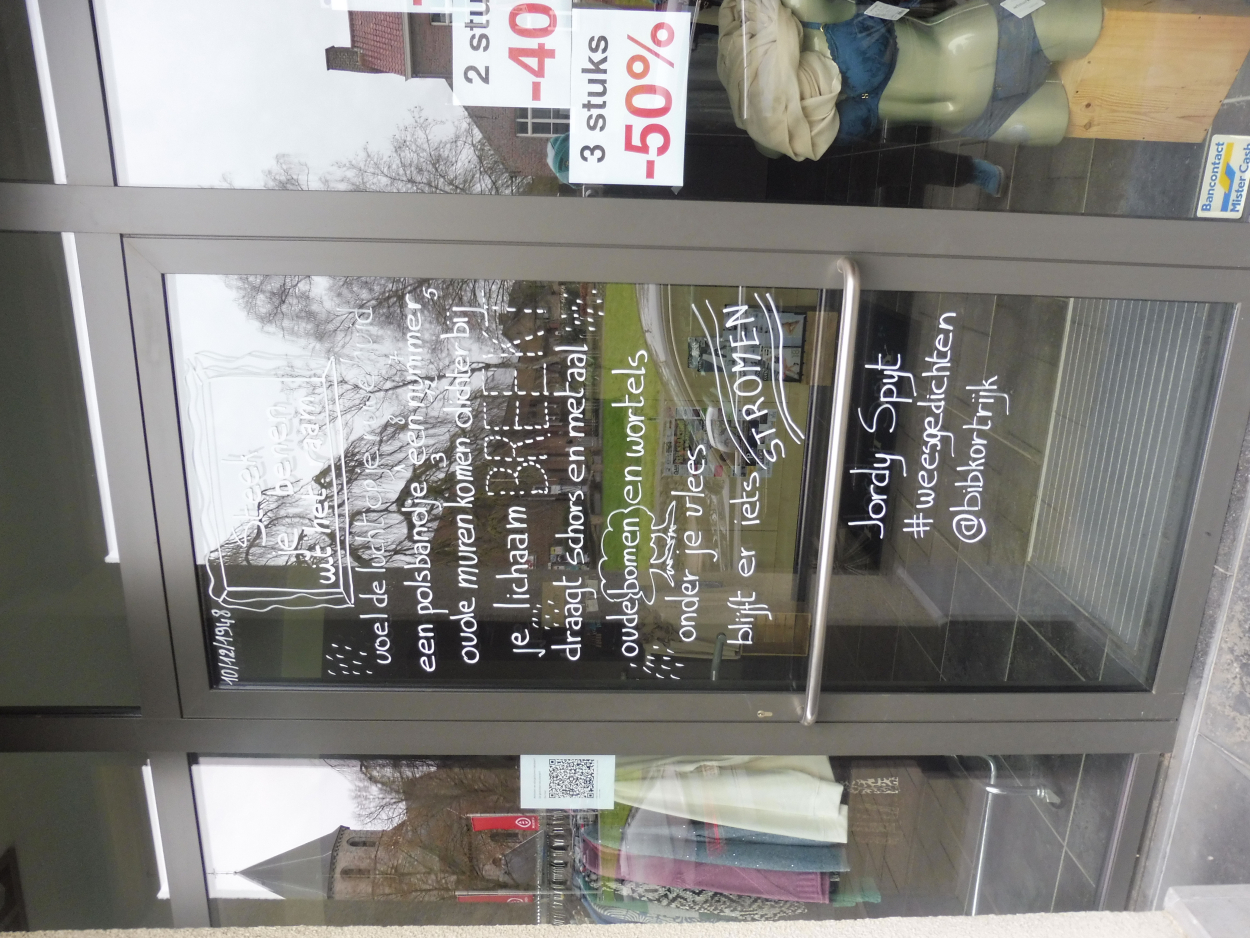 10/12/1948
Steek
je benen
uit het raam
voel de luchtspiegel
een polsbandje, een nummer
8 4 3 2 5
oude muren komen dichterbij
je lichaam BREEKT
draagt schors en metaal
oude bomen en wortels
onder je vlees
blijft er iets STROMEN
Jordy Spyt
#weesgedichten
@bibkortrijk
2 stu
-40
3 stuks
-50%
Bancontact
Mister Cash